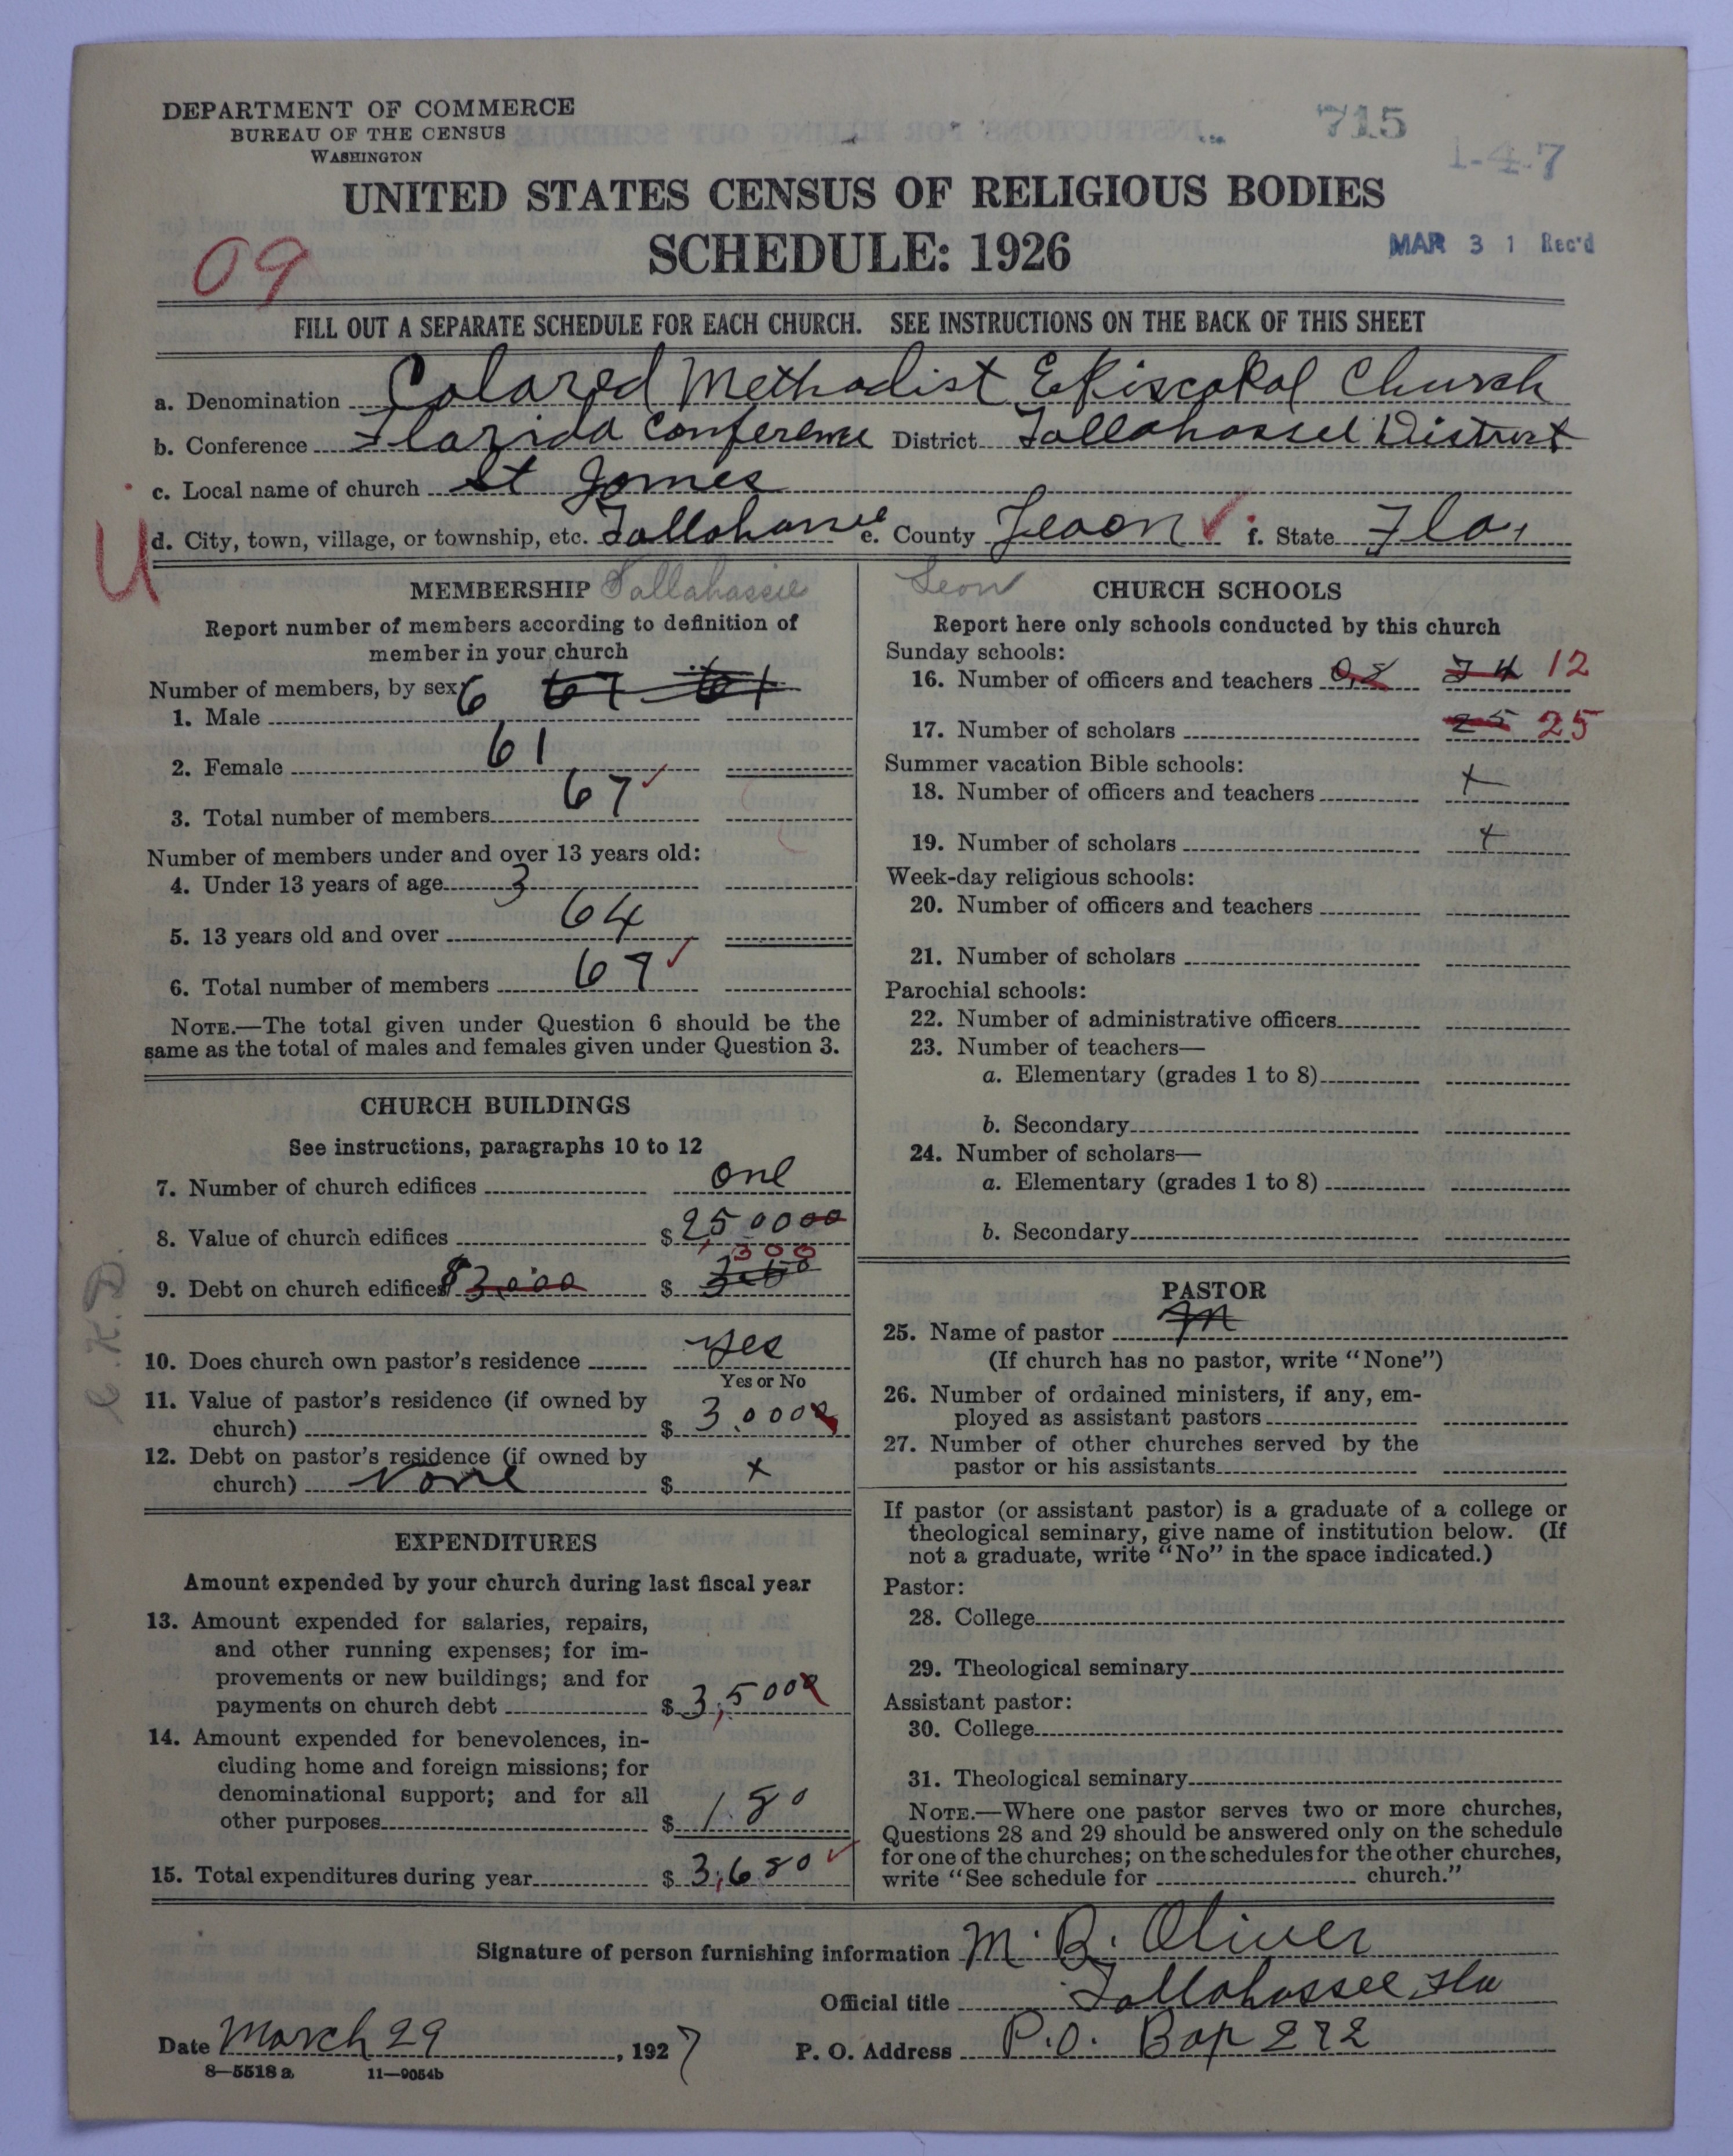 DEPARTMENT OF COMMERCE
BUREAU OF THE CENSUS
WASHINGTON
715
1-4-7
UNITED STATES CENSUS OF RELIGIOUS BODIES
SCHEDULE: 1926
MAR 31 Rec'd
09
FILL OUT A SEPARATE SCHEDULE FOR EACH CHURCH. SEE INSTRUCTIONS ON THE BACK OF THIS SHEET
a. Denomination Colored Methodist Episcopal Church
b. Conference Florida Conference District Tallahassee District
c. Local name of church St James
U
d. City, town, village, or township, etc. Tallahassee e. County Leon f. State Fla.
MEMBERSHIP Tallahassee
Report number of members according to definition of
member in your church
Number of members, by sex
1. Male 6 67 61
2. Female 61
3. Total number of members 67
Number of members under and over 13 years old:
4. Under 13 years of age 3
5. 13 years old and over 64
6. Total number of members 67
NOTE.—The total given under Question 6 should be the
same as the total of males and females given under Question 3.
CHURCH BUILDINGS
See instructions, paragraphs 10 to 12
7. Number of church edifices one
8. Value of church edifices $ 250000
9. Debt on church edifices $3,000 $ 300
10. Does church own pastor's residence yes
Yes or No
11. Value of pastor's residence (if owned by
church) $ 3,000
12. Debt on pastor's residence (if owned by
church) none $ x
EXPENDITURES
Amount expended by your church during last fiscal year
13. Amount expended for salaries, repairs,
and other running expenses; for im-
provements or new buildings; and for
payments on church debt $ 3,500
14. Amount expended for benevolences, in-
cluding home and foreign missions; for
denominational support; and for all
other purposes $ 180
15. Total expenditures during year $ 3,680
Leon CHURCH SCHOOLS
Report here only schools conducted by this church
Sunday schools:
16. Number of officers and teachers 12
17. Number of scholars 25 25
Summer vacation Bible schools:
18. Number of officers and teachers x
19. Number of scholars x
Week-day religious schools:
20. Number of officers and teachers
21. Number of scholars
Parochial schools:
22. Number of administrative officers
23. Number of teachers—
a. Elementary (grades 1 to 8)
b. Secondary
24. Number of scholars—
a. Elementary (grades 1 to 8)
b. Secondary
PASTOR
25. Name of pastor
(If church has no pastor, write "None")
26. Number of ordained ministers, if any, em-
ployed as assistant pastors
27. Number of other churches served by the
pastor or his assistants
If pastor (or assistant pastor) is a graduate of a college or
theological seminary, give name of institution below. (If
not a graduate, write "No" in the space indicated.)
Pastor:
28. College
29. Theological seminary
Assistant pastor:
30. College
31. Theological seminary
NOTE.—Where one pastor serves two or more churches,
Questions 28 and 29 should be answered only on the schedule
for one of the churches; on the schedules for the other churches,
write "See schedule for church."
Signature of person furnishing information M. R. Oliver
Official title Tallahassee, Fla
Date March 29, 1927 P. O. Address P.O. Box 272
8—5518a 11—9054b